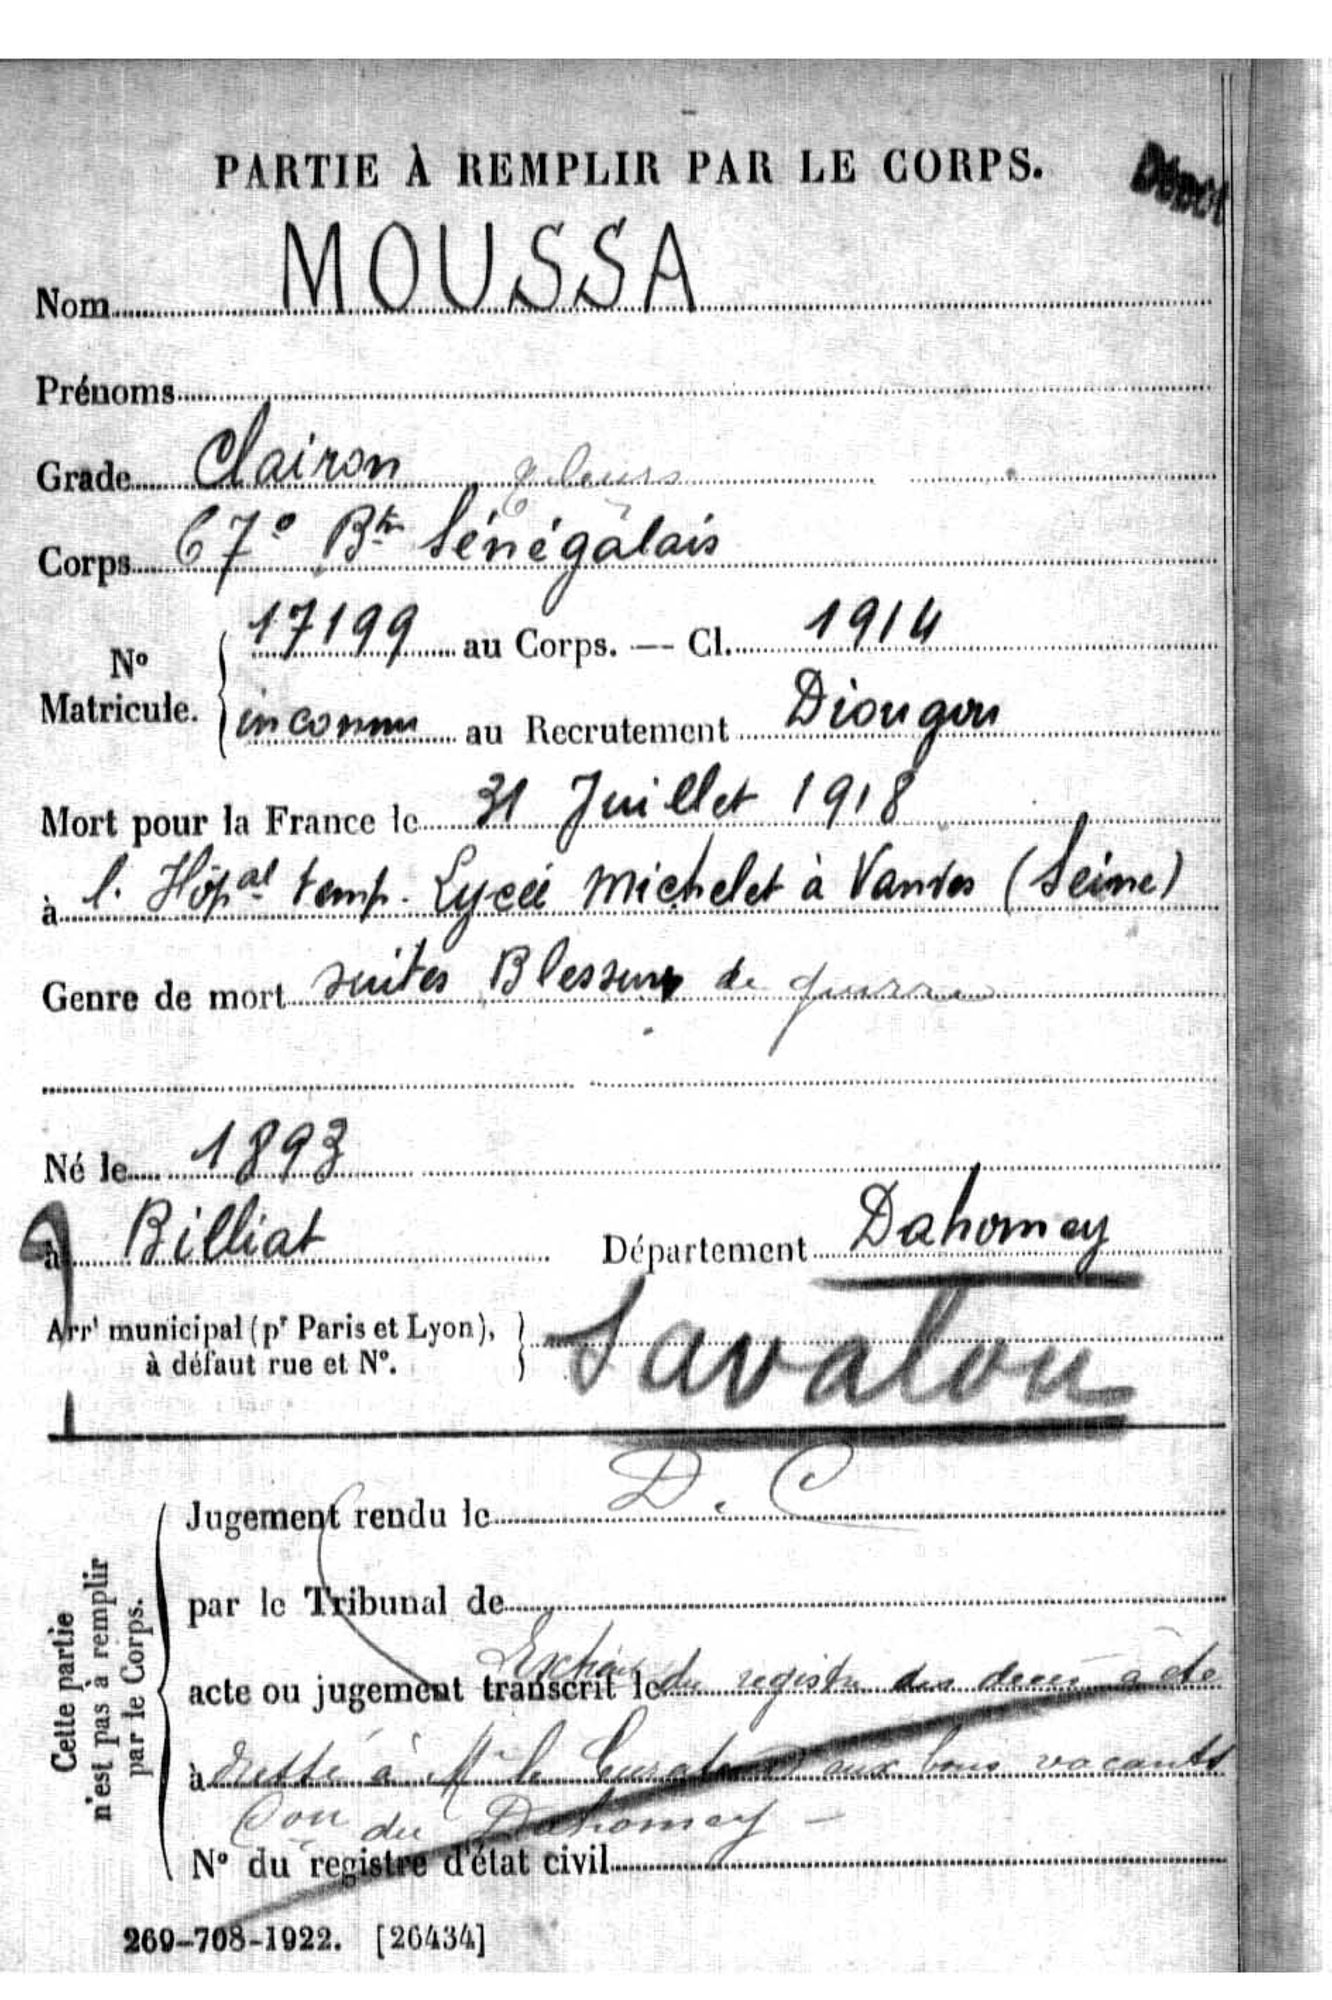 PARTIE À REMPLIR PAR LE CORPS.
Dépôt
Nom MOUSSA
Prénoms
Grade Clairon
Corps 67e Btn Sénégalais
No Matricule. { 17199 au Corps. — Cl. 1914
inconnu au Recrutement Diougou
Mort pour la France le 31 Juillet 1918
à l. Hôpal temp. Lycée Michelet à Vanves (Seine)
Genre de mort suites Blessures de guerre
Né le 1893
à Billiat Département Dahomey
Arrt municipal (pr Paris et Lyon), à défaut rue et No. } Savalou
D. C
Jugement rendu le
par le Tribunal de
Extrait du registre des décès a été
acte ou jugement transcrit le
à dressé à Mr le Curateur aux biens vacants
Con du Dahomey —
No du registre d'état civil
Cette partie n'est pas à remplir par le Corps.
269-708-1922. [26434]